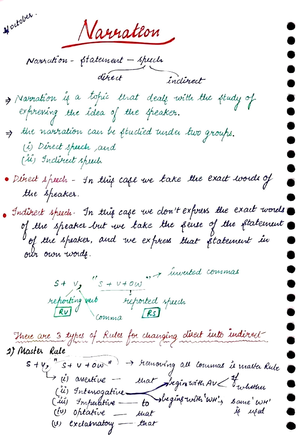 4 october.
Narration
Narration - Statement - speech
direct indirect
→ Narration is a topic that deals with the study of
expressing the idea of the speaker.
→ the narration can be studied under two groups.
(i) Direct speech and
(ii) Indirect speech
• Direct speech - In this case we take the exact words of
the speaker.
• Indirect speech - In this case we don't express the exact words
of the speaker but we take the sense of the statement
of the speaker, and we express that statement in
our own words.
inverted commas
S + V, "S + V + OW"
reporting verb reported speech
RV comma RS
There are 5 types of Rules for changing direct into indirect
1) Master Rule
S + V, S + V + OW → removing all commas is master Rule
(i) assertive — that
(ii) Interrogative begins with AV if whether
(iii) Imperative — to begins with 'WH', same 'WH'
(iv) optative — that is used
(v) exclamatory — that